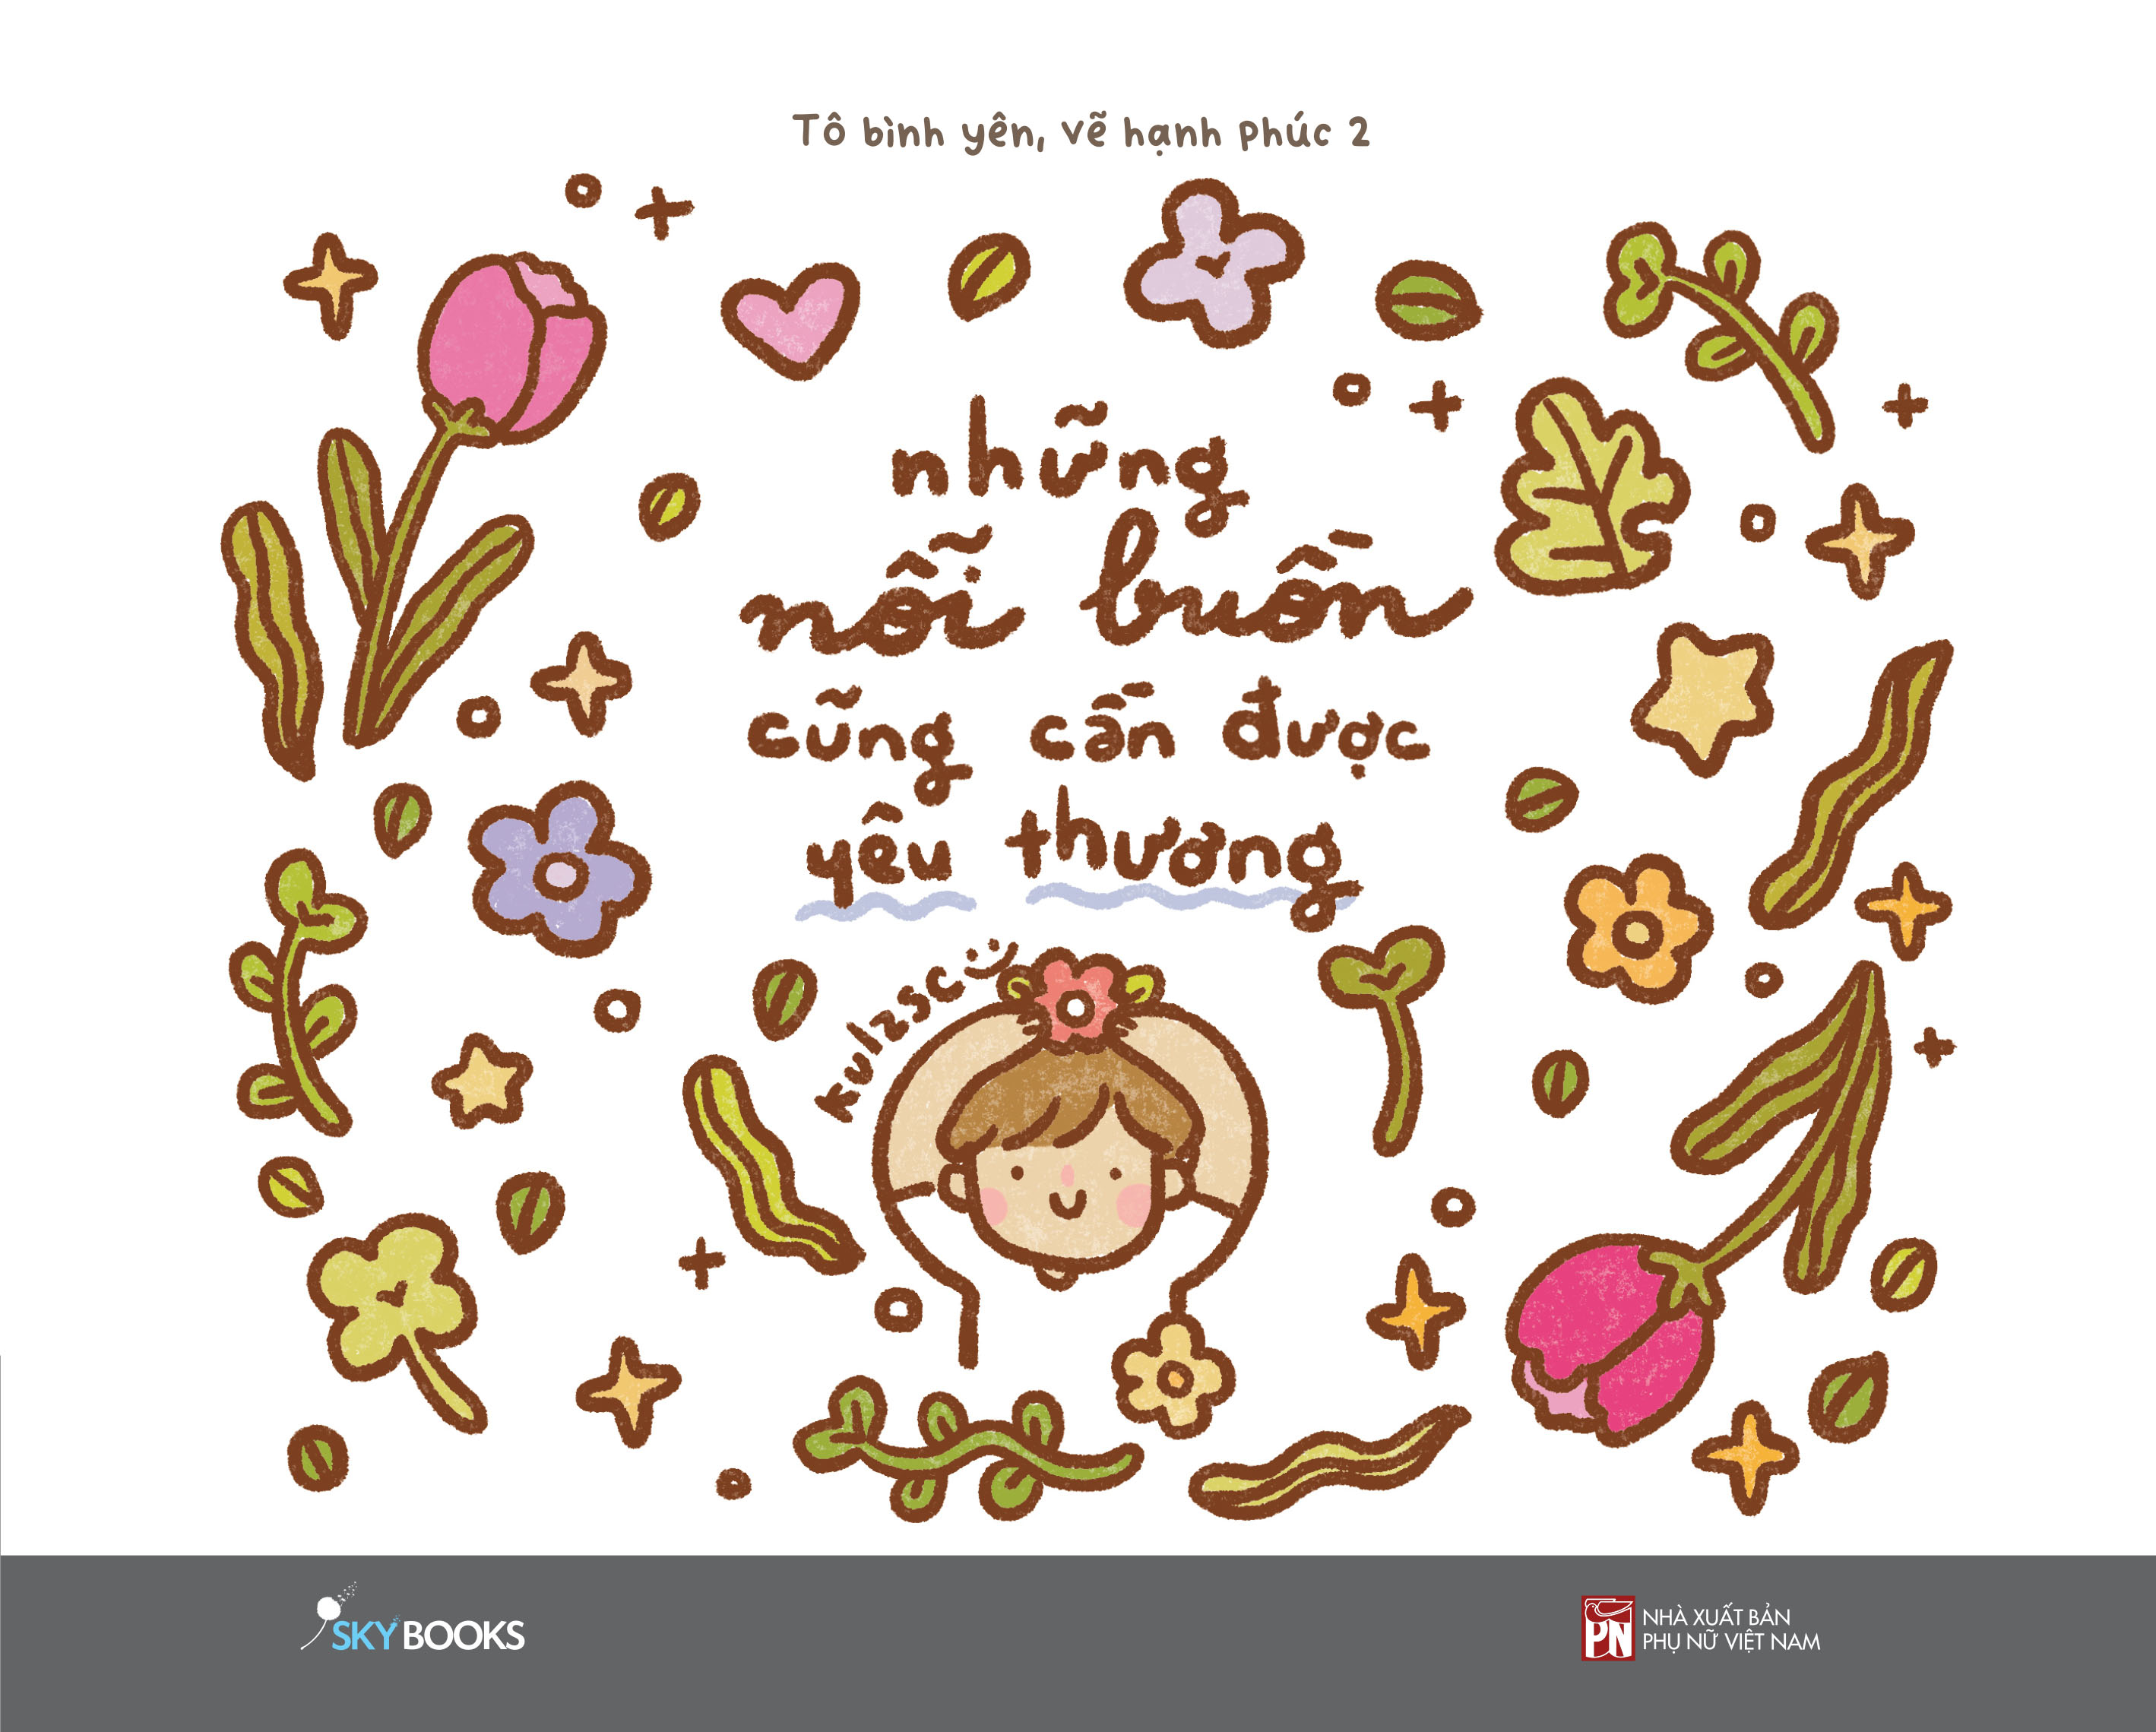 Tô bình yên, vẽ hạnh phúc 2
những
nỗi buồn
cũng cần được
yêu thương
kulzsc
SKYBOOKS
PN
NHÀ XUẤT BẢN
PHỤ NỮ VIỆT NAM